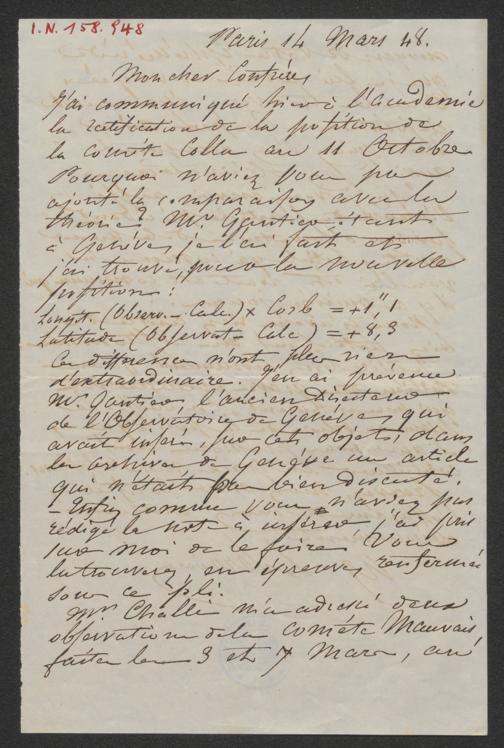 I.N. 158.948
Paris 14 Mars 48.
Mon cher Confrère,
J'ai communiqué hier à l'académie
la rectification de la position de
la comète Colla au 11 Octobre
Pourquoi n'aviez vous pas
ajouté la comparaison avec la
théorie? Mr. Gautier étant
à Genève, je l'ai fait et
j'ai trouvé, pour la nouvelle
position:
Longit. (Observ. - Calc.) x Cos b = +1",1
Latitude (Observat - Calc) = +8,3
Ces différences n'ont plus rien
d'extraordinaire. J'en ai prévenu
Mr. Gautier l'ancien Directeur
de l'Observatoire de Genève, qui
avait inséré, sur cet objet, dans
les archives de Genève un article
qui n'était pas bien discuté.
- Enfin comme vous n'aviez pas
rédigé la Note à insérer, j'ai pris
sur moi de le faire. Vous
la trouverez en épreuves renfermée
sous ce pli.
Mr. Challis m'a adressé deux
observations de la comète Mauvais,
faites les 3 et 7 Mars, au